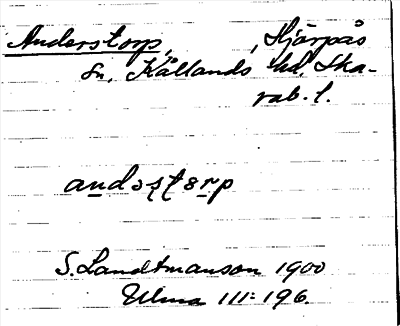 Anderstorp, , Hjärpås
sn, Kållands hd, Ska-
rab. l.
andəʂʈɵrp
S. Landtmanson 1900
Ulma III: 196.